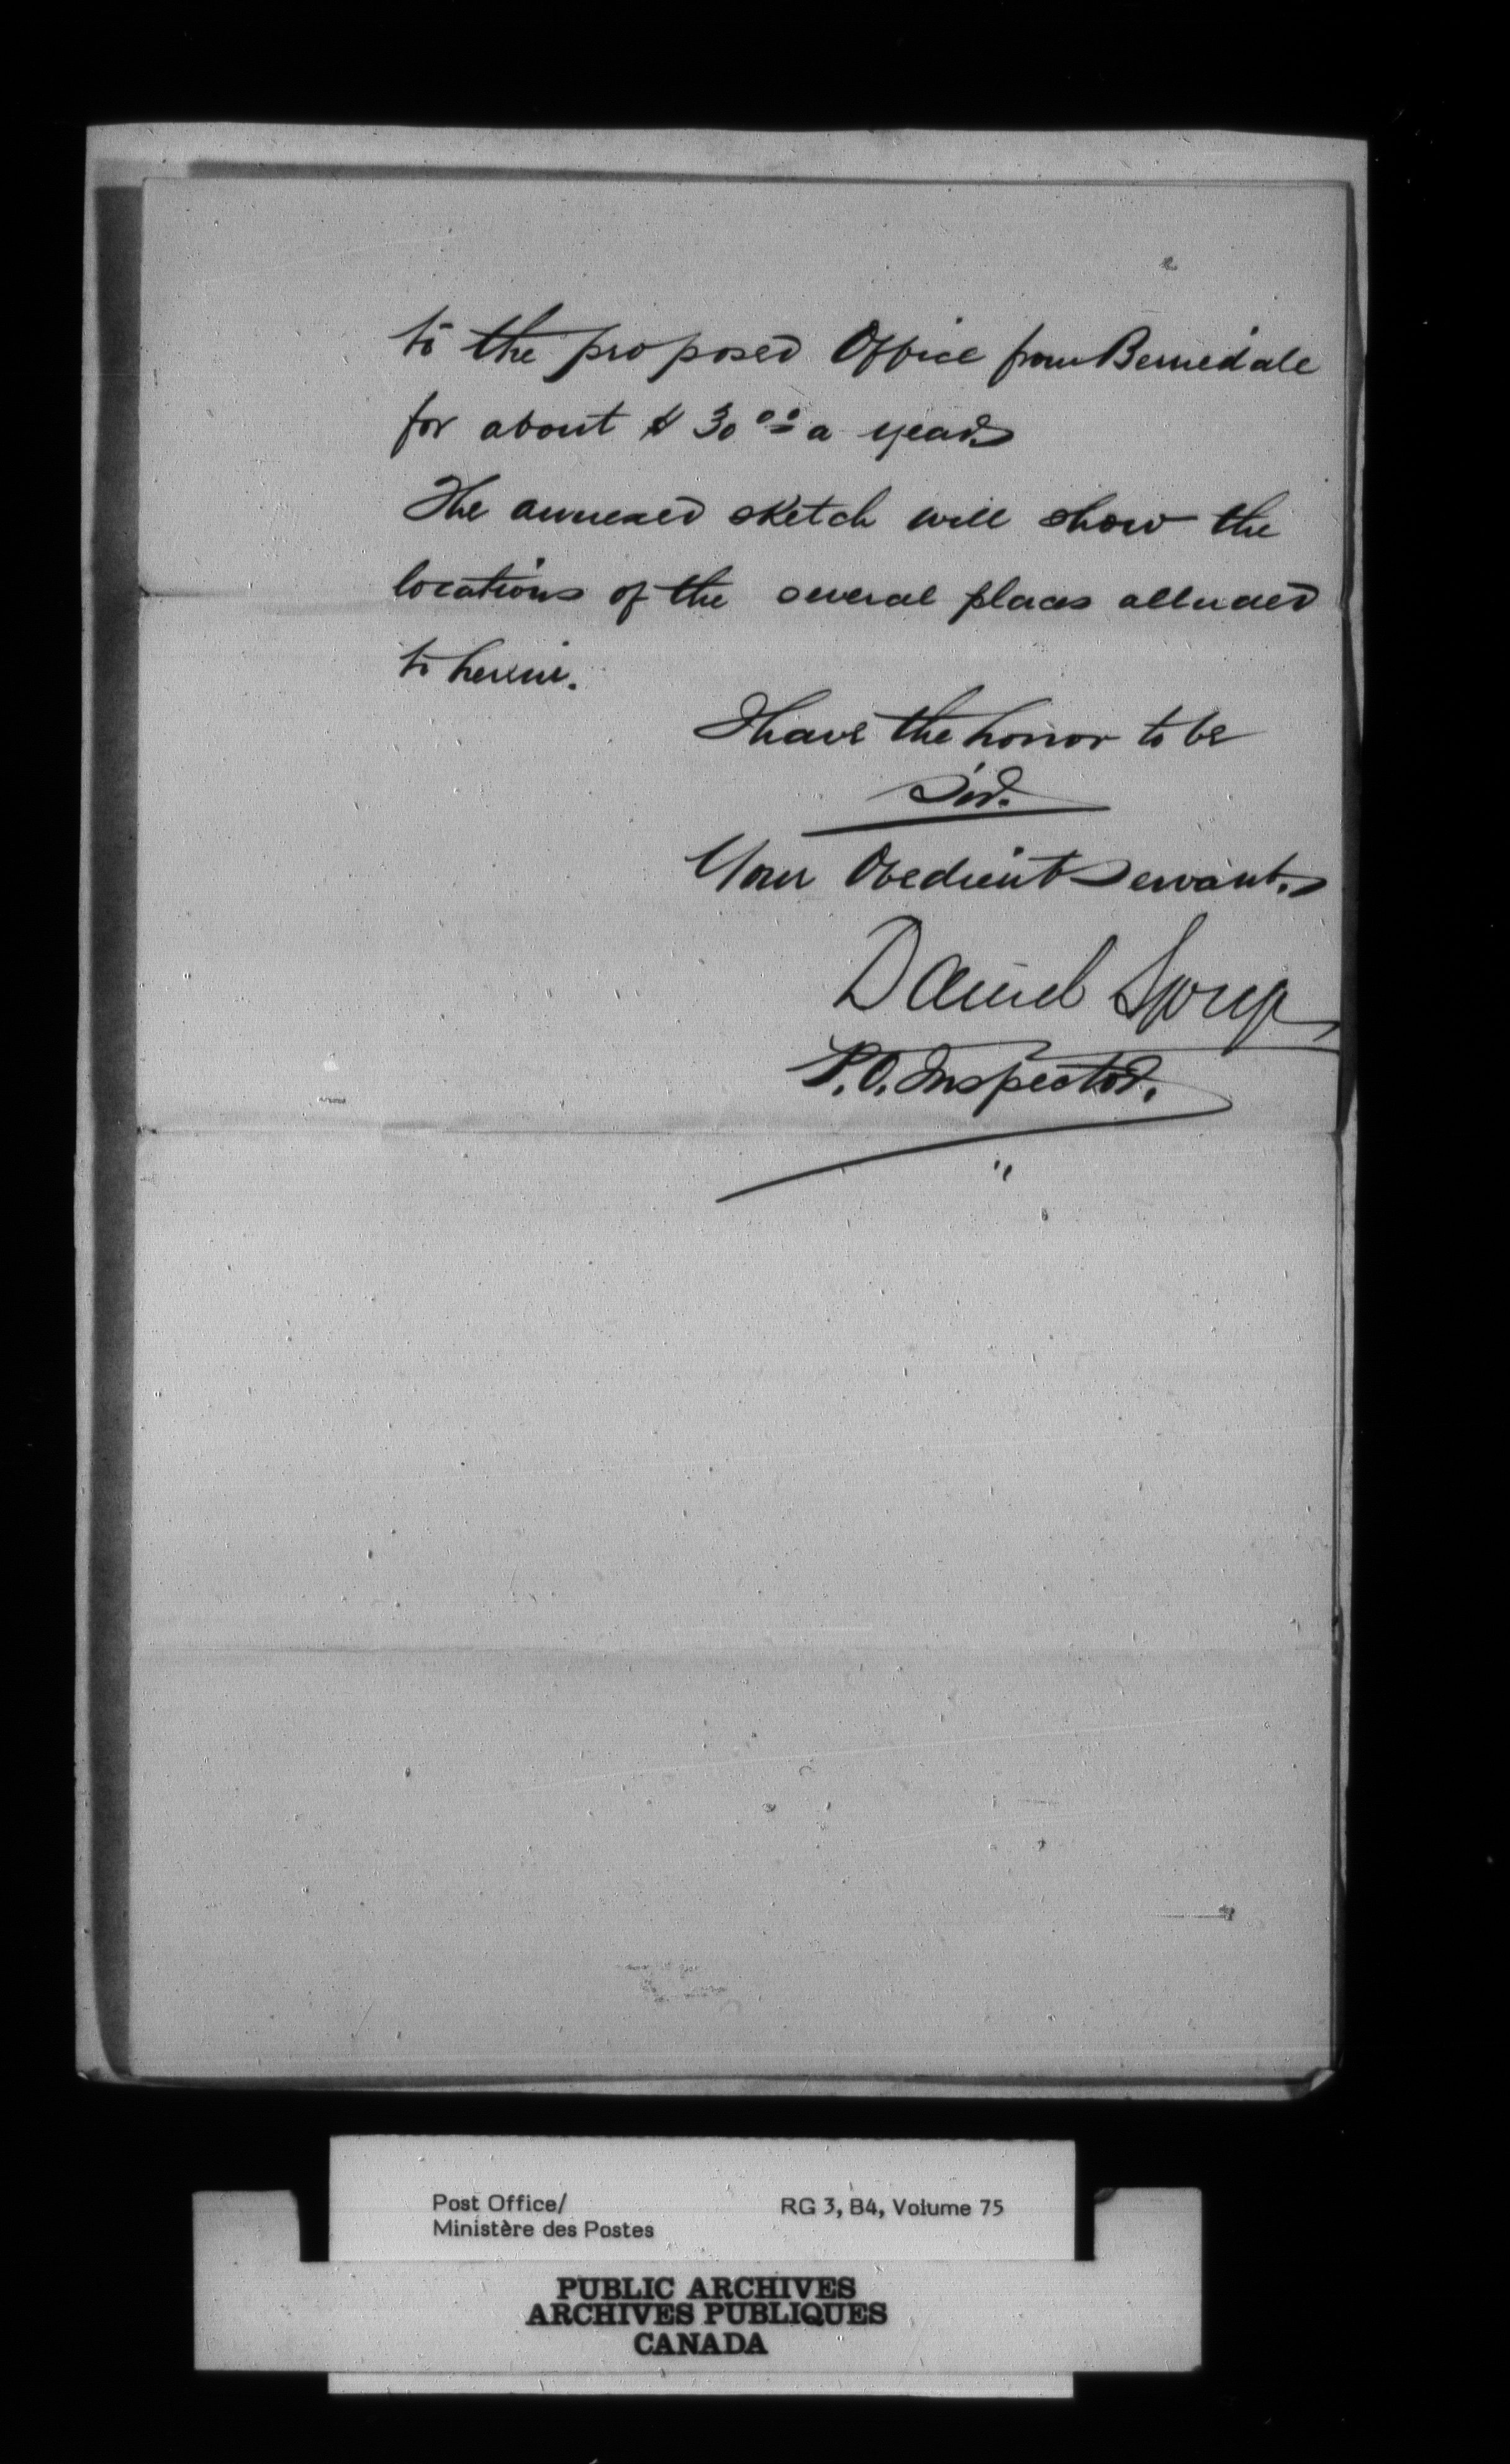 to the proposed Office from Berriedale
for about $30 00 a year
The annexed sketch will show the
locations of the several places alluded
to herein.
I have the honor to be
Sir.
Your Obedient Servant.
Daniel Spry
P.O. Inspector.
Post Office/
Ministère des Postes
RG 3, B4, Volume 75
PUBLIC ARCHIVES
ARCHIVES PUBLIQUES
CANADA